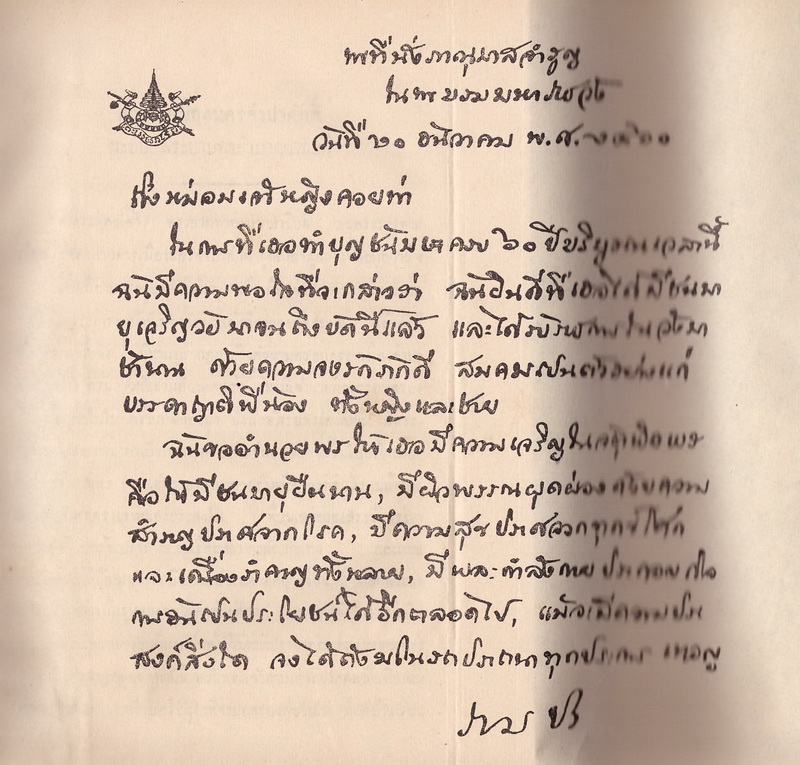 พระที่นั่งภาณุมาศจำรูญ
ในพระบรมมหาราชวัง
วันที่ ๒๐ ธันวาคม พ.ศ.
ถึงหม่อมเจ้าหญิงคอยท่า
ในการที่เธอทำบุญชนมายุครบ ๖๐ ปีบริบูรณเวลานี้
ฉันมีความพอใจที่จะกล่าวว่า ฉันยินดีที่เธอได้มีชนมา
ยุเจริญวัยมาจนถึงบัดนี้แล้ว และได้รับราชการในวังมา
ช้านาน ด้วยความจงรักภักดี สมควรเปนตัวอย่างแก่
บรรดาญาติพี่น้อง ทั้งหญิงและชาย
ฉันขออำนวยพรให้เธอมีความเจริญใน
คือให้มีชนมายุยืนนาน, มีผิวพรรณผุดผ่อง ด้วยความ
สำราญปราศจากโรค, มีความสุขปราศจากทุกข์โศก
และเครื่องรำคาญทั้งหลาย, มีพละกำลังกายประกอบกิจ
การอันเปนประโยชน์ได้อีกตลอดไป, แม้จะมีความปรา
สงค์สิ่งใด จงได้ถึงมโนรถปรารถนาทุกประการ เทอญ